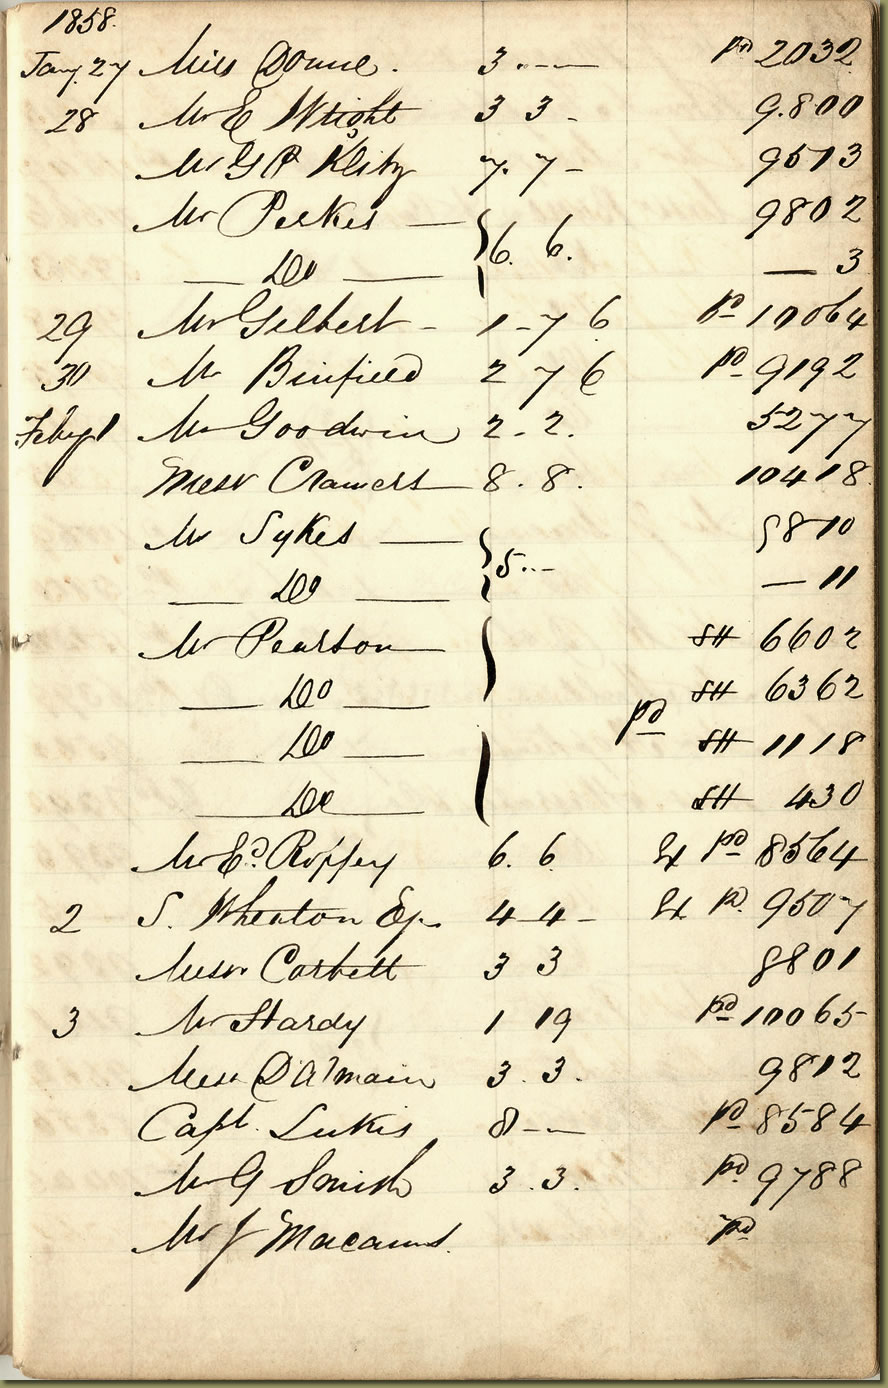 1858.
Jany. 27 Miss Donne. 3 . - - pd 2032
28 Mr E Wright 3 3 - 9.800
Mr G P 7. 7 - 9513
Mr Perkes — 6. 6. 9802
— Do — — 3
29 Mr Gelbert - 1 - 7 6 pd 10064
30 Mr Binfield 2 7 6 pd 9192
Feby 1 Mr Goodwin 2 - 2. 5277
Messr Cramers 8 . 8 . 10418
Mr Sykes — 5 . - - 9810
— Do — — 11
Mr Pearson SH 6602
— Do — SH 6362
pd
— Do — SH 1118
— Do — SH 430
Mr Ed. Roffey 6. 6 Ex pd 8564
2 S. Wheaton Esq. 4 - 4 - Ex pd. 9507
Messr. Corbett 3 3 8801
3 Mr Hardy 1 19 pd 10065
Messr D'Almain 3 . 3 . 9812
Capt. Lukis 8 - - pd 8584
Mr G Smith 3 . 3 . pd. 9788
Mr J pd